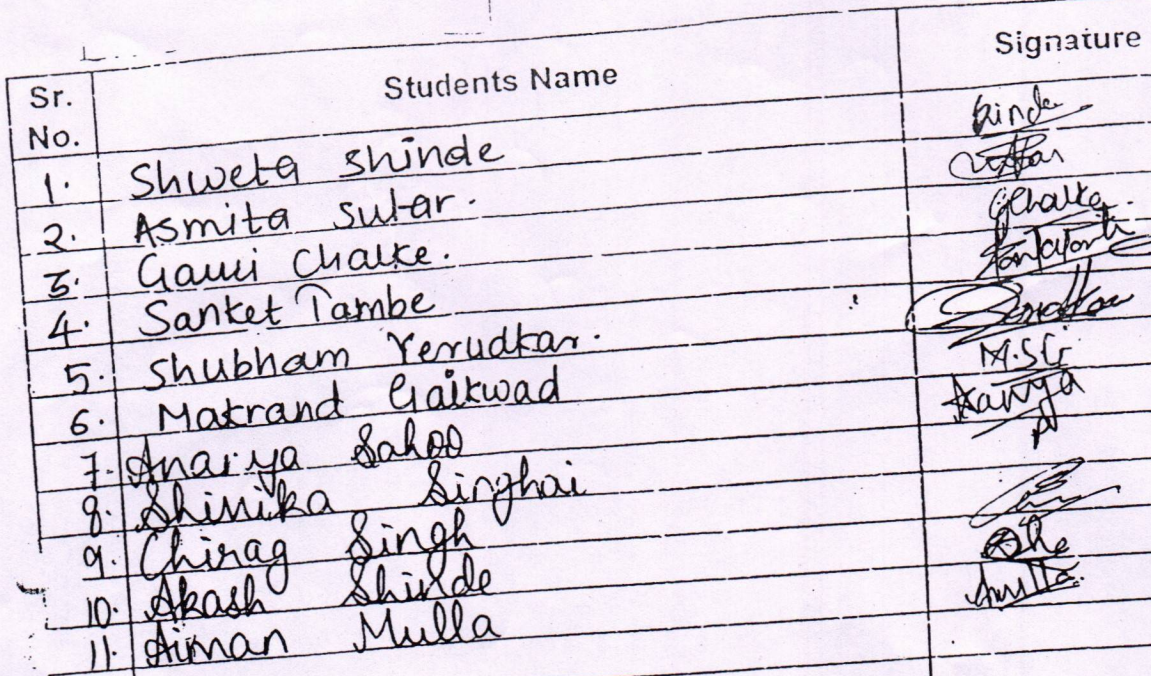 Sr. No. Students Name Signature
1. Shweta Shinde
2. Asmita Sutar.
3. Gauri Chalke. GChalke.
4. Sanket Tambe
5. Shubham Yerudkar.
6. Makrand Gaikwad M.SG
7. Anarya Sahoo
8. Shinika Singhai
9. Chirag Singh
10. Akash Shinde
11. Aiman Mulla